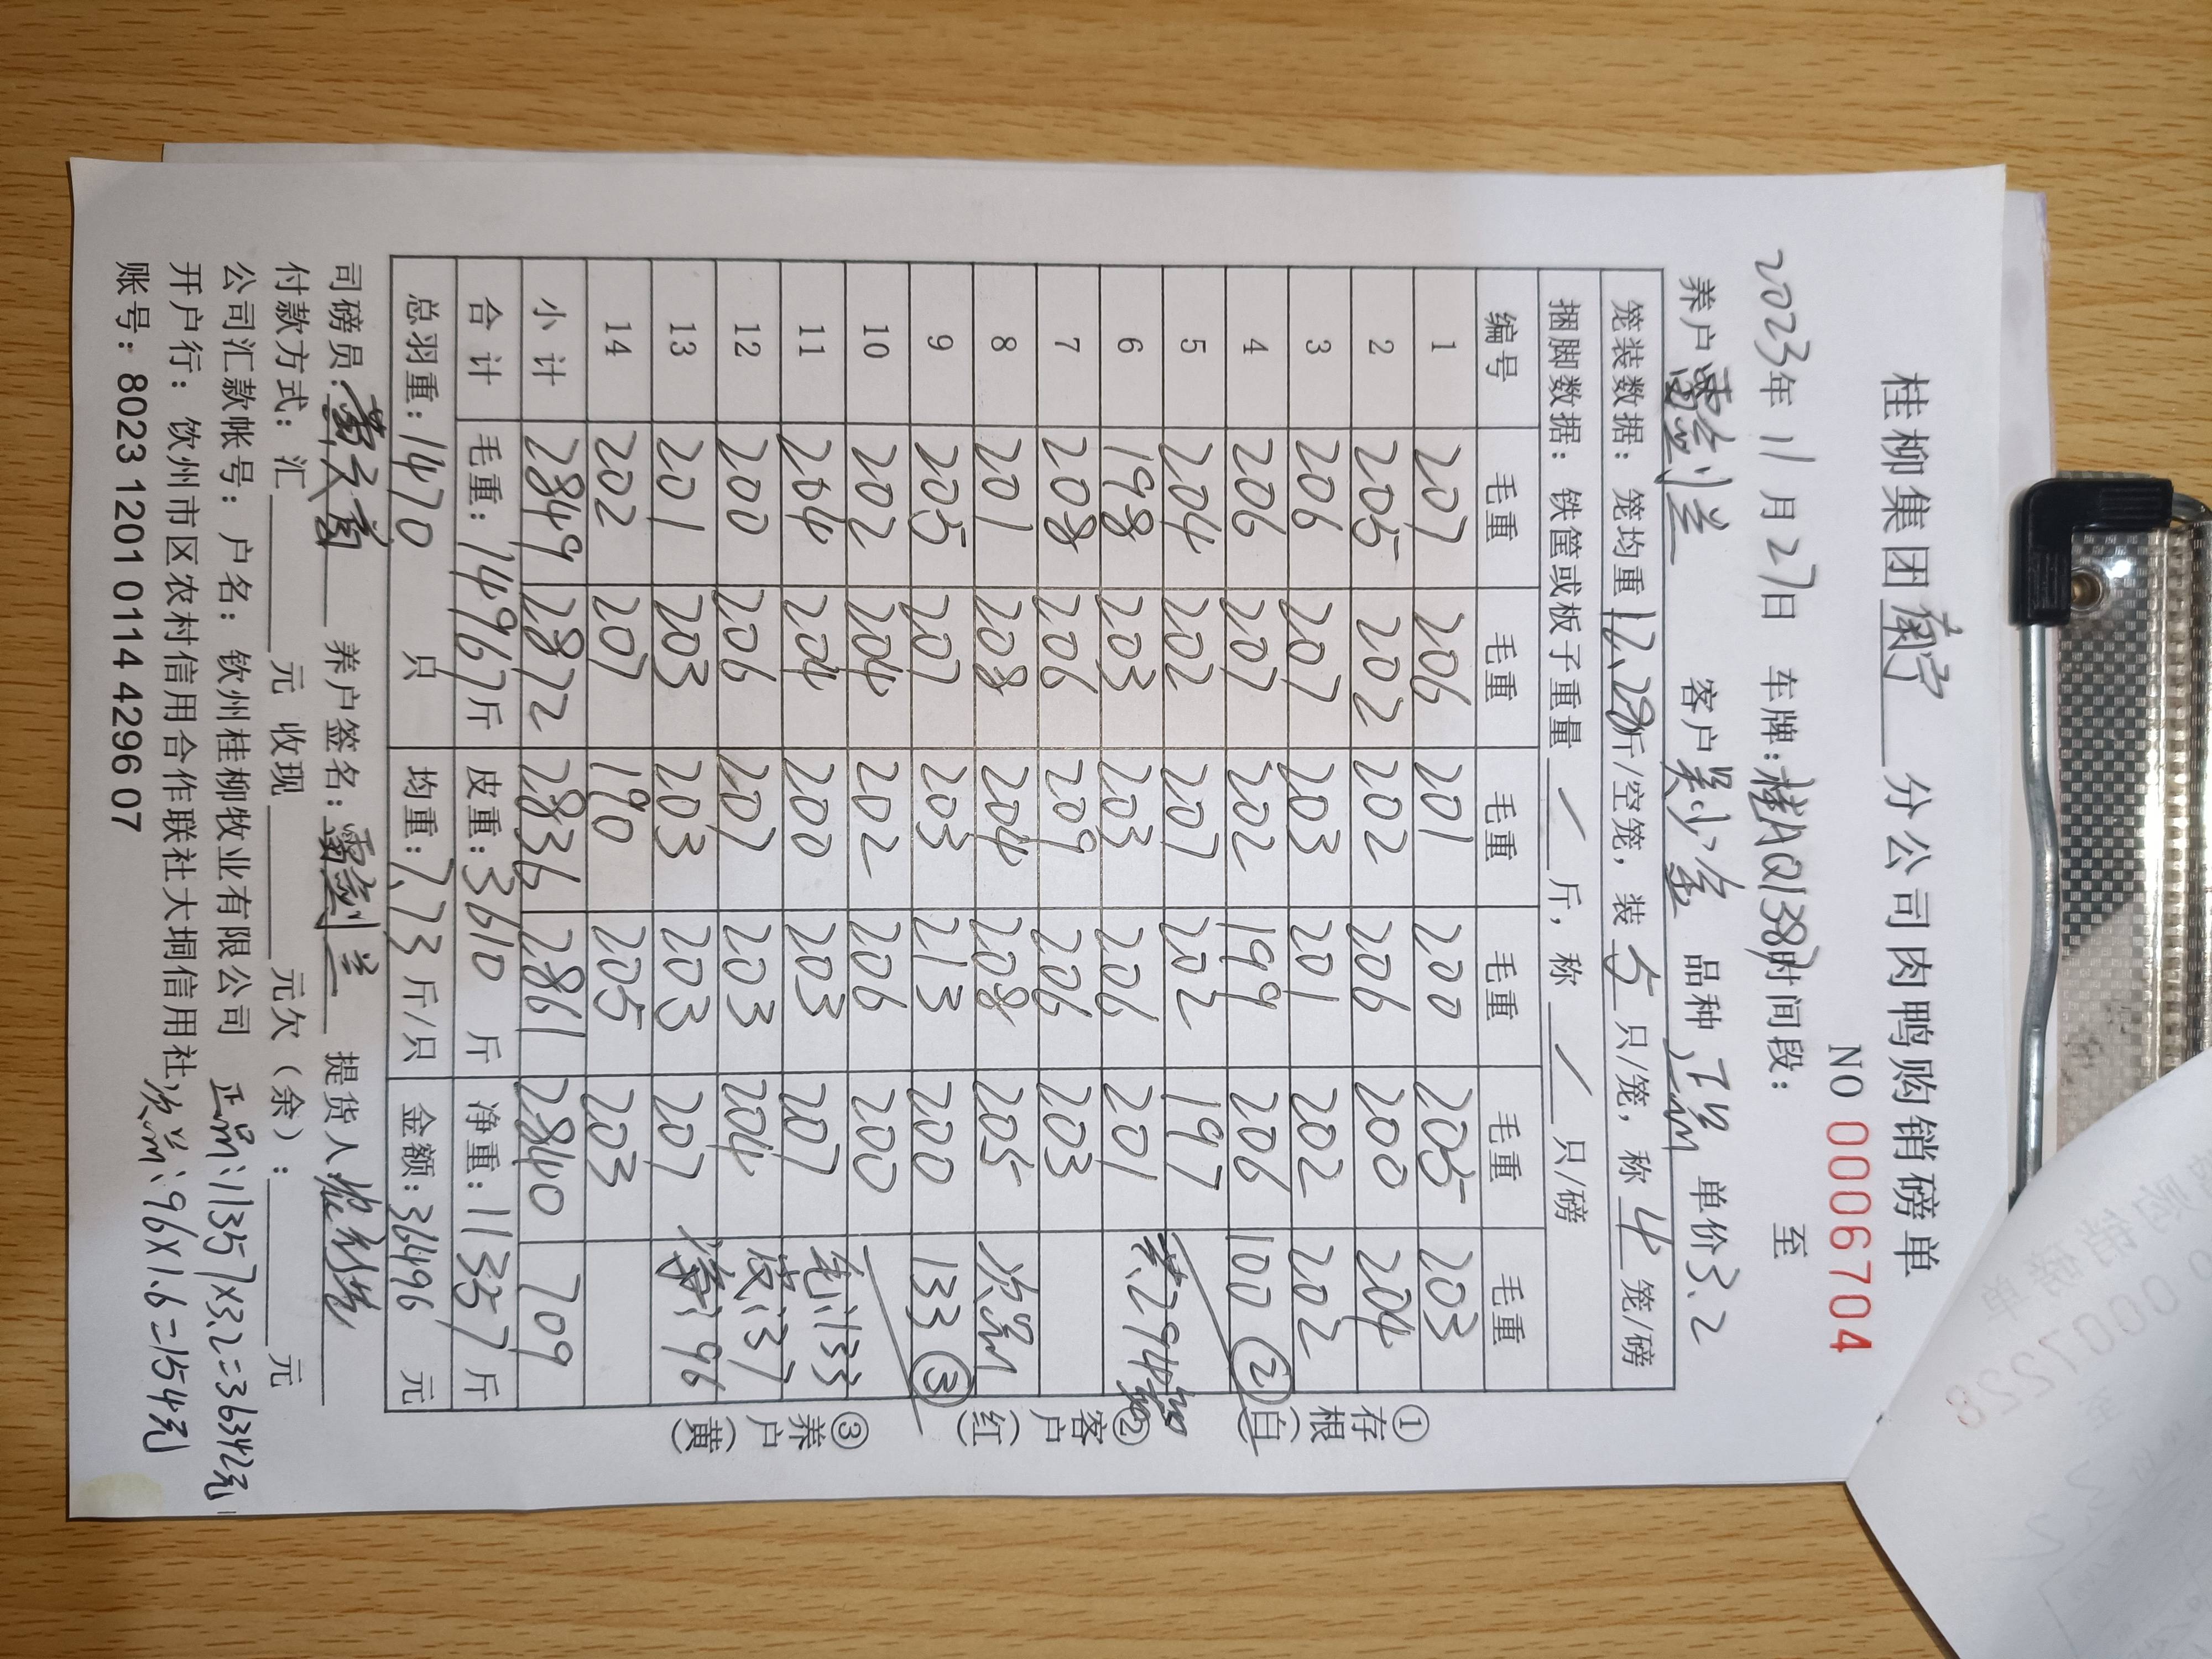 桂柳集团南宁分公司肉鸭购销磅单
NO 0006704
2023年11月27日 车牌:桂AQ1387时间段: 至
养户 雷剑兰 客户 吴少金 品种 正品 单价3.2
笼装数据: 笼均重12.28斤/空笼, 装 5 只/笼, 称 4 笼/磅
捆脚数据: 铁筐或板子重量 / 斤, 称 / 只/磅
编号 毛重 毛重 毛重 毛重 毛重 毛重
1 207 206 201 200 205 203
2 205 202 202 206 200 204
3 206 207 203 201 202 202
4 206 207 202 199 206 100 ②
5 204 202 207 202 197
6 198 203 203 206 201 共294笼
7 208 206 209 206 203
8 201 208 204 208 205 次品
9 205 207 203 213 200 133 ③
10 202 204 202 206 200
11 204 204 200 203 207 毛:133
12 200 206 207 203 204 皮:37
13 201 203 203 203 207 净:96
14 202 207 190 205 203
小计 2849 2872 2836 2861 2840 709
合计 毛重: 14967斤 皮重:3610 斤 净重:11357 斤
总羽重: 1470 只 均重:7.73 斤/只 金额:36496 元
①存根(白) ②客户(红) ③养户(黄)
司磅员: 养户签名: 雷剑兰 提货人
付款方式: 汇 元 收现 元欠(余): 元
公司汇款帐号: 户名: 钦州桂柳牧业有限公司 正品:11357×3.2=36342元
开户行: 饮州市区农村信用合作联社大垌信用社 次品:96×1.6=154元
账号: 8023 1201 0114 4296 07
0007228